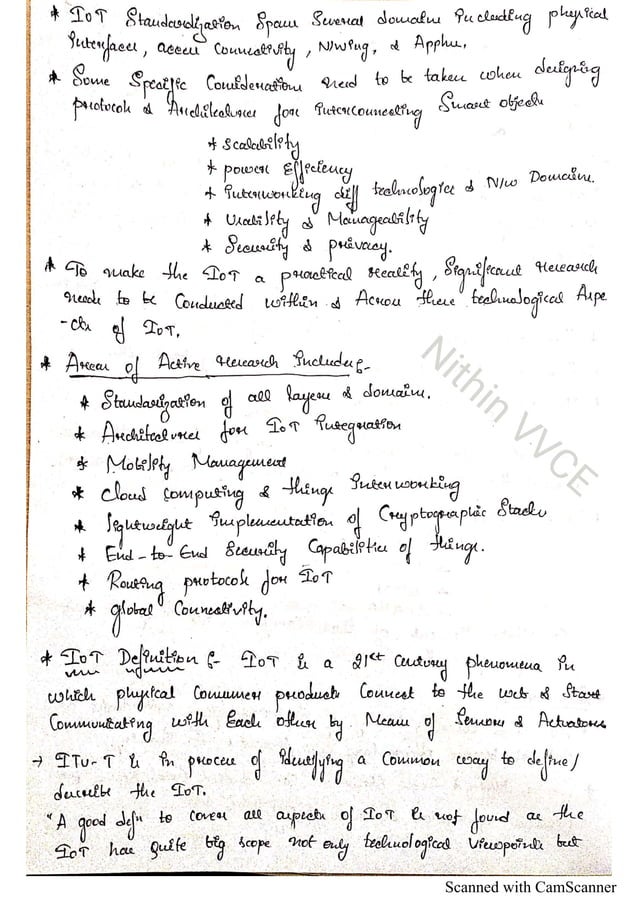 * IoT Standardization Span Several domains Including physical
Interfaces, access Connectivity, N/wing, & Applns.
* Some Specific Considerations need to be taken when designing
protocols & Architectures for Interconnecting Smart objects
* Scalability
* power Efficiency
* Interworking diff technologies & N/w Domains.
* Usability & Manageability
* Security & privacy.
* To make the IoT a practical reality, Significant research
needs to be Conducted within & Across these technological Aspe
-cts of IoT.
* Areas of Active research Includes:-
* Standardization of all layers & domains.
* Architectures for IoT Integration
* Mobility Management
* Cloud computing & things Interworking
* lightweight Implementation of Cryptographic Stacks
* End-to-End Security Capabilities of things.
* Routing protocols for IoT
* global Connectivity.
Nithin VVCE
* IoT Definition:- IoT is a 21st Century phenomena In
which physical Consumer products Connect to the web & Start
Communicating with Each other by Means of Sensors & Actuators
→ ITU-T is In process of Identifying a Common way to define/
describe the IoT.
"A good defn to cover all aspects of IoT is not found as the
IoT has quite big scope not only technological viewpoints but
Scanned with CamScanner